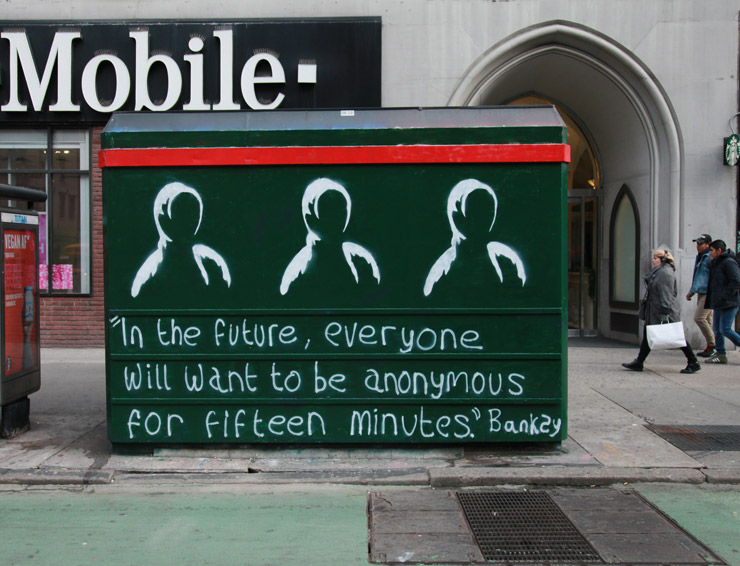 Mobile
"In the future, everyone
will want to be anonymous
for fifteen minutes." Banksy
VEGAN AF